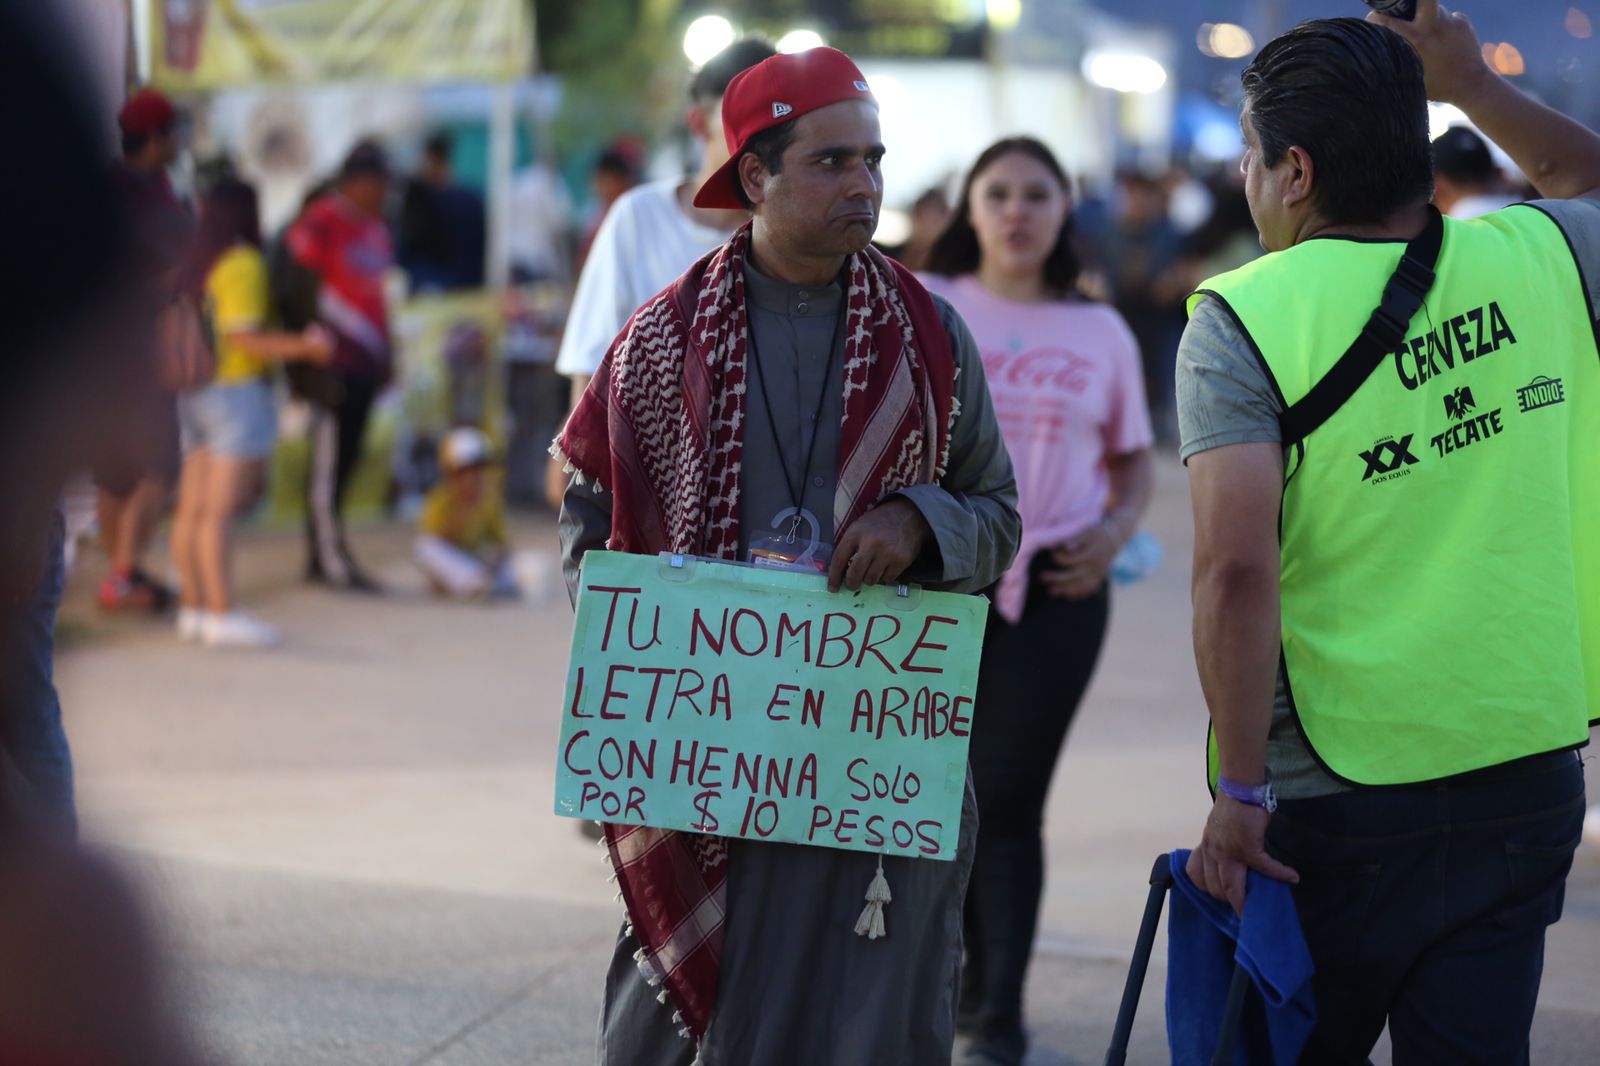 TU NOMBRE
LETRA EN ARABE
CON HENNA SOLO
POR $10 PESOS
Coca-Cola
CERVEZA
CERVEZA
XX
DOS EQUIS
TECATE
INDIO